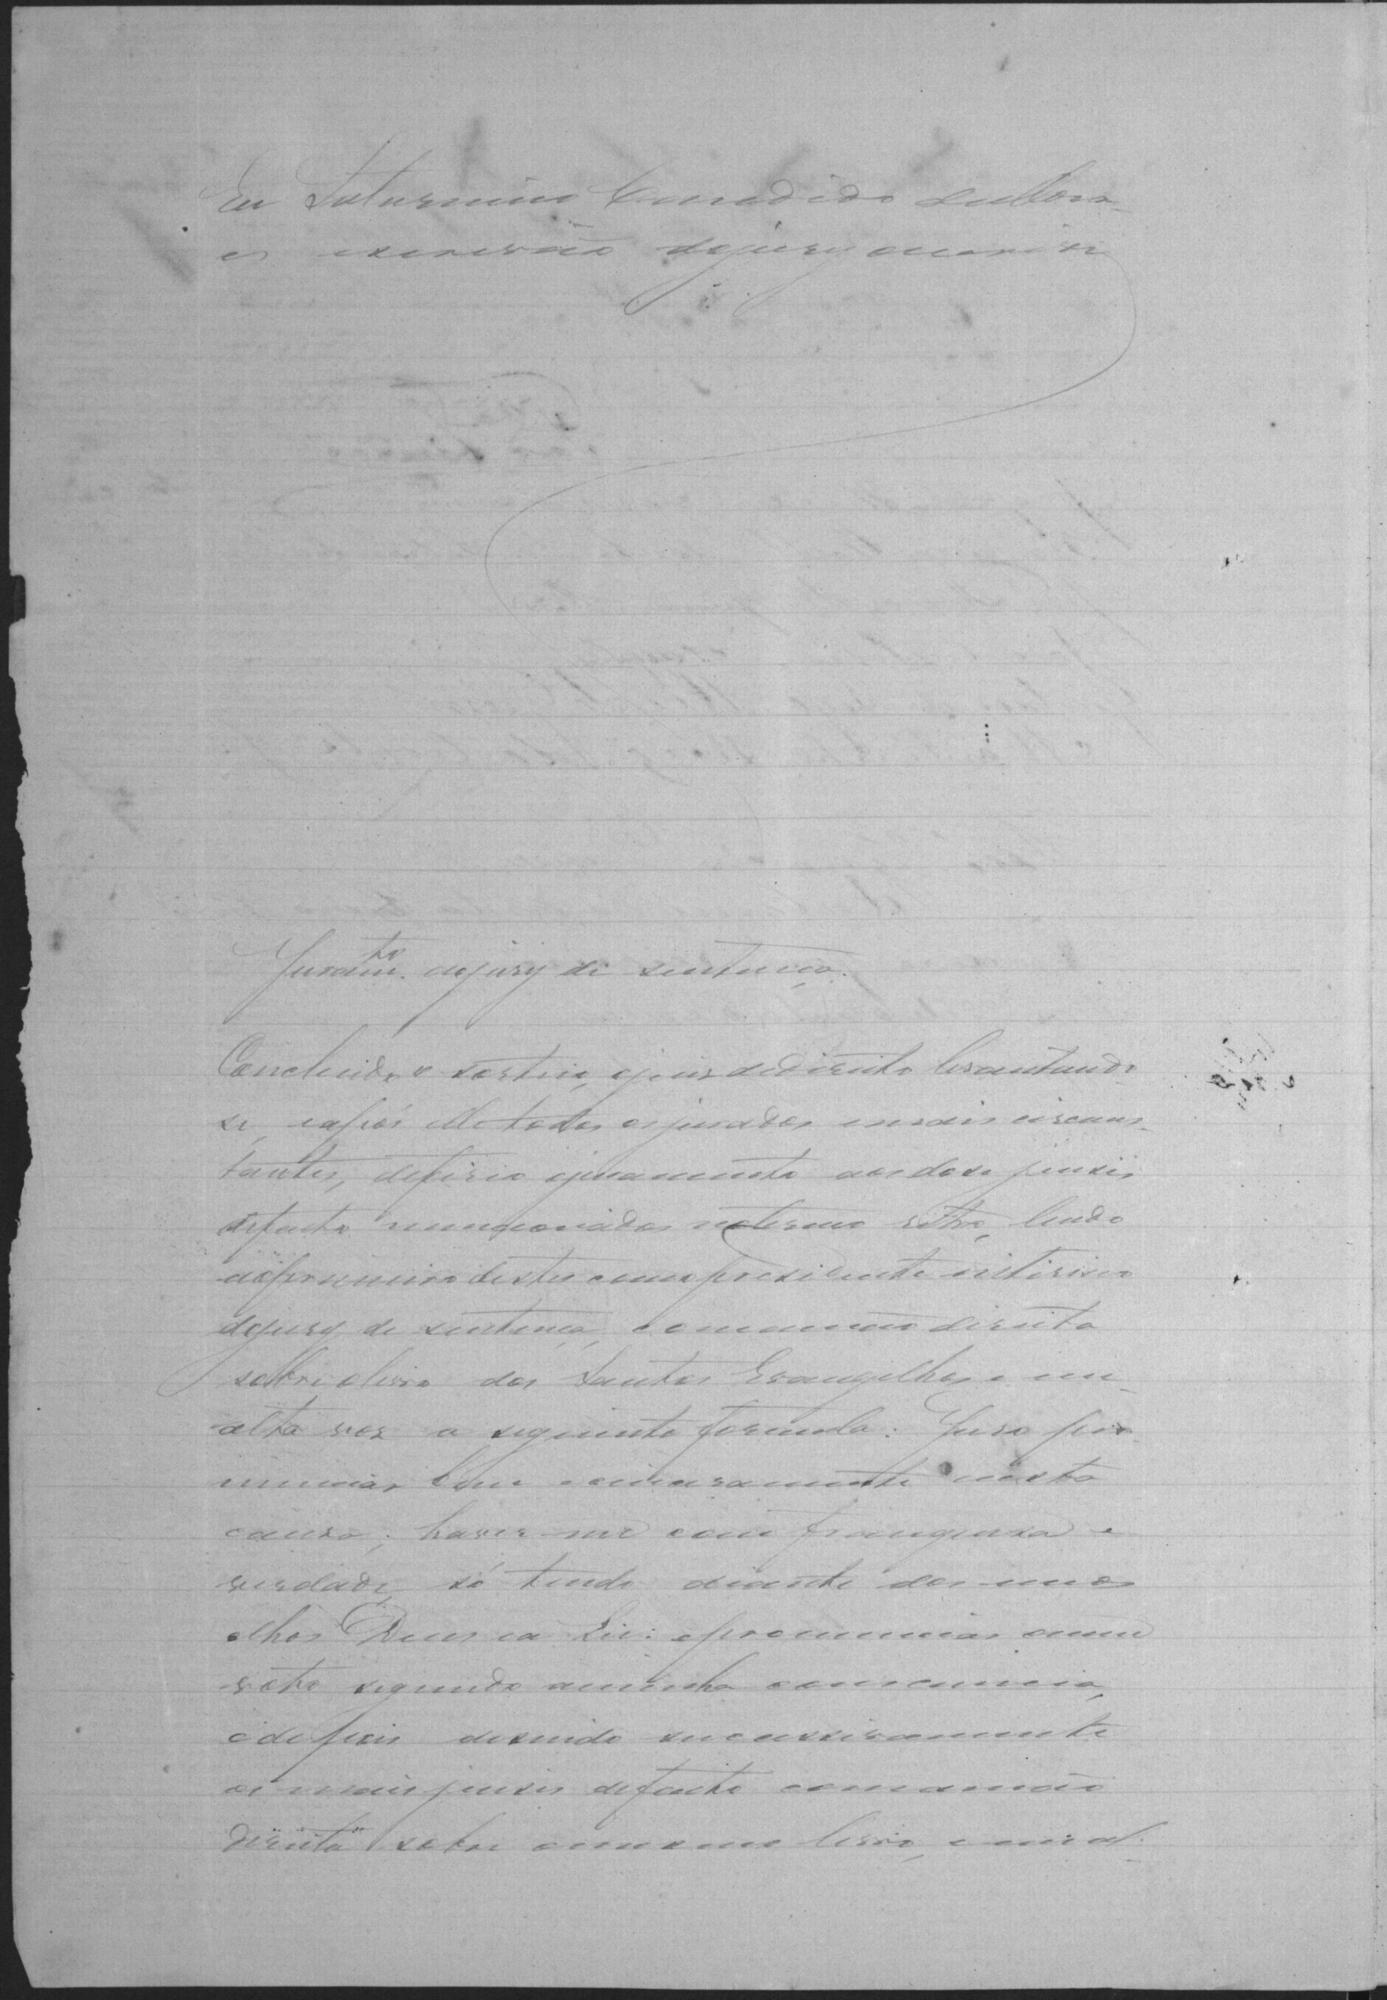 Eu Saturnino Candido
o escrivão do jury o escrevi
Juram.to do jury de sentença.
Concluido o sorteio, o juiz de direito levantando
se, e após elle todos os jurados e mais circuns-
tantes, deferio o juramento aos dose juises
de facto mencionados no termo retro, lendo
o primeiro destes como presidente interino
do jury de sentença, com a mão direita
sobre o livro dos Santos Evangelhos e em
alta voz a seguinte formula: Juro pro-
nunciar bem e sinceramente nesta
causa; haver-me com franquesa e
verdade, só tendo diante dos meus
olhos Deus e a Lei; e pronunciar o meu
voto segundo a minha consciencia,
e depois disendo successivamente
os mais juises de facto com a mão
direita sobre o mesmo livro, e em al-